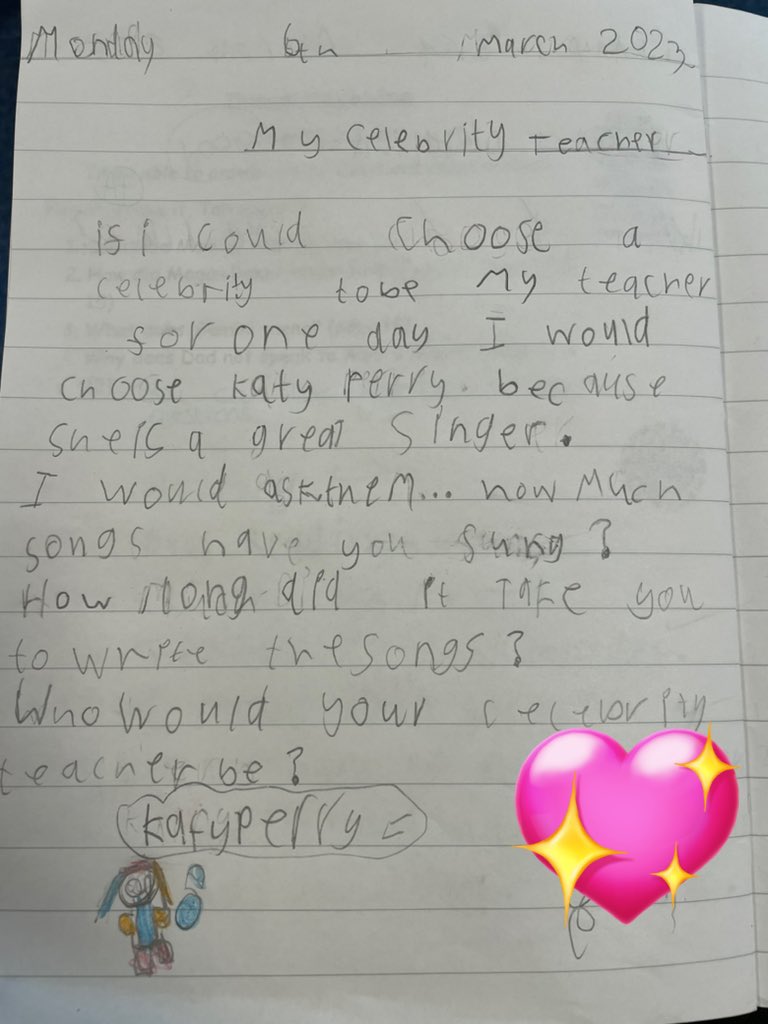 Monday 6th March 2023
My celebrity teacher
if i could choose a
celebrity tobe My teacher
for one day I would
choose katy perry. because
sheis a great singer.
I would ask them... how Much
songs have you sung?
How long did it TAKE you
to write the songs?
Who would your celebrity
teacher be?
katyperry =